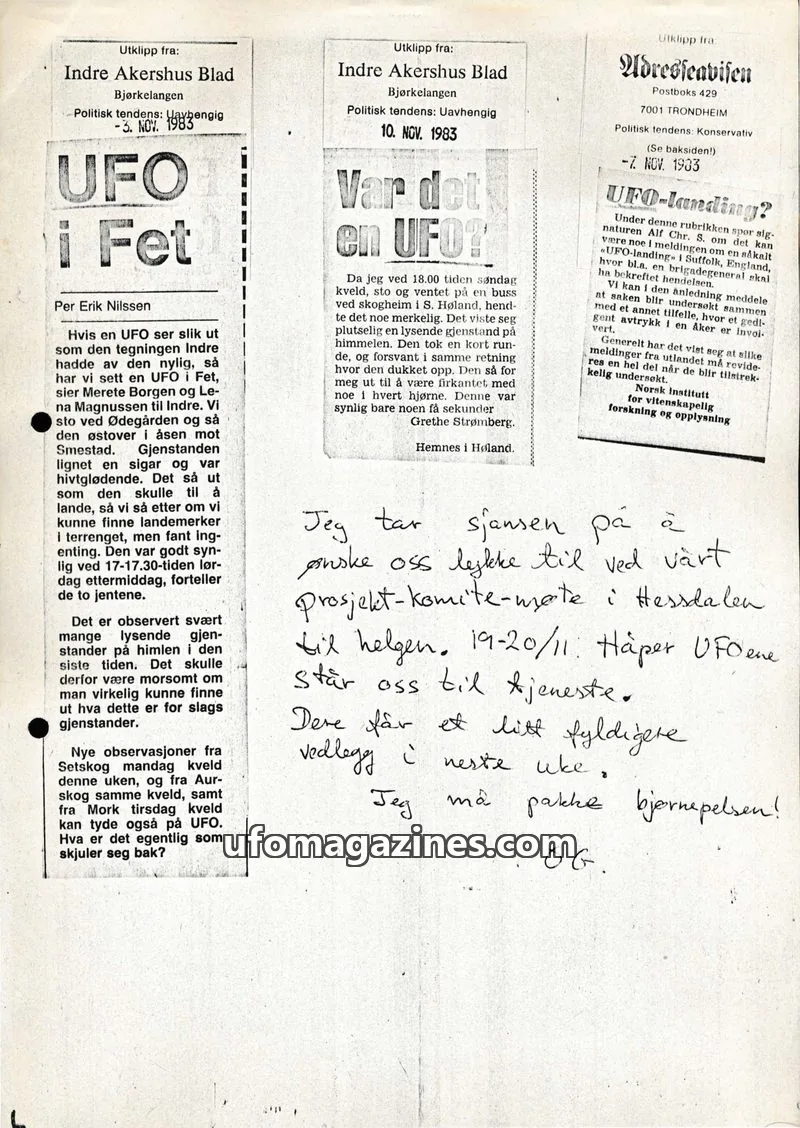 Utklipp fra:
Indre Akershus Blad
Bjørkelangen
Politisk tendens: Uavhengig
-3. NOV. 1983
UFO
i Fet
Per Erik Nilssen
Hvis en UFO ser slik ut
som den tegningen Indre
hadde av den nylig, så
har vi sett en UFO i Fet,
sier Merete Borgen og Le-
na Magnussen til Indre. Vi
sto ved Ødegården og så
den østover i åsen mot
Smestad. Gjenstanden
lignet en sigar og var
hivtglødende. Det så ut
som den skulle til å
lande, så vi så etter om vi
kunne finne landemerker
i terrenget, men fant ing-
enting. Den var godt syn-
lig ved 17-17.30-tiden lør-
dag ettermiddag, forteller
de to jentene.
Det er observert svært
mange lysende gjen-
stander på himlen i den
siste tiden. Det skulle
derfor være morsomt om
man virkelig kunne finne
ut hva dette er for slags
gjenstander.
Nye observasjoner fra
Setskog mandag kveld
denne uken, og fra Aur-
skog samme kveld, samt
fra Mork tirsdag kveld
kan tyde også på UFO.
Hva er det egentlig som
skjuler seg bak?
Utklipp fra:
Indre Akershus Blad
Bjørkelangen
Politisk tendens: Uavhengig
10. NOV. 1983
Var det
en UFO?
Da jeg ved 18.00 tiden søndag
kveld, sto og ventet på en buss
ved skogheim i S. Høland, hend-
te det noe merkelig. Det viste seg
plutselig en lysende gjenstand på
himmelen. Den tok en kort run-
de, og forsvant i samme retning
hvor den dukket opp. Den så for
meg ut til å være firkantet med
noe i hvert hjørne. Denne var
synlig bare noen få sekunder
Grethe Strømberg.
Hemnes i Høland.
Utklipp fra:
Adresseavisen
Postboks 429
7001 TRONDHEIM
Politisk tendens: Konservativ
(Se baksiden!)
-7. NOV. 1983
UFO-landing?
Under denne rubrikken spør sig-
naturen Alf Chr. S. om det kan
være noe i meldingen om en såkalt
«UFO-landing» i Suffolk, England,
hvor bl.a. en brigadegeneral skal
ha bekreftet hendelsen.
Vi kan i den anledning meddele
at saken blir undersøkt sammen
med et annet tilfelle, hvor et gedi-
gent avtrykk i en åker er invol-
vert.
Generelt har det vist seg at slike
meldinger fra utlandet må revide-
res en hel del når de blir tilstrek-
kelig undersøkt.
Norsk institutt
for vitenskapelig
forskning og opplysning
Jeg tar sjansen på å
ønske oss lykke til ved vårt
prosjekt-komite-møte i Hessdalen
til helgen. 19-20/11. Håper UFOene
står oss til tjeneste.
Dere får et litt fyldigere
vedlegg i neste uke.
Jeg må pakke bjørnepelsen!
ufomagazines.com